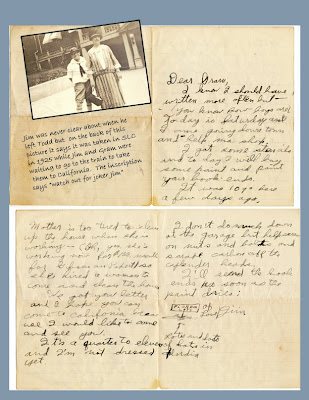 Jim was never clear about when he
left Todd but on the back of this
picture it says it was taken in SLC
in 1925 while Jim and Gram were
waiting to go to the train to take
them to California. The inscription
says "watch out for joker Jim"
Dear Gram,
I know I should have
written more often but
you know how boys are.
To day is Saturday and
I was going down town
and help
I got some
and to day I will buy
some paint and paint
your book ends.
It was 109° here
a few days ago,
Mother is too tired to clean
up the house when she is
working - (Oh, yes, she's
working now for the month
for
she hired a woman to
come and clean the house
I got your letter
and I hope you may
come to California becau
use I would like to come
and see you.
It's a quarter to eleven
and I'm not dressed
yet
I don't do much down
at the garage but help
on nuts and bolts and
scrape carbon off the
cylinder heads.
I'll send the book
ends as soon as the
paint dries.
Jim
lots and lots